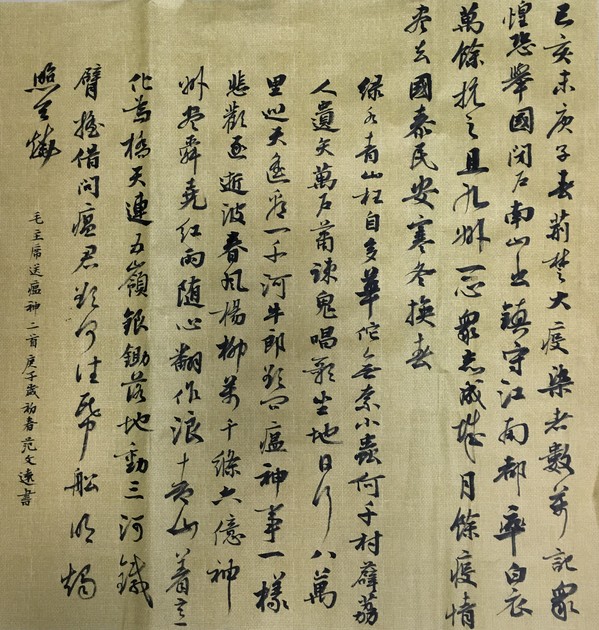 己亥末庚子春荊楚大疫染者數萬記眾
惶恐舉國閉戶南山出鎮守江南都率白衣
萬餘抗之且九州一心眾志成城月餘疫情
尽去國泰民安寒冬換春
綠水青山枉自多華佗無奈小蟲何千村薜荔
人遺矢萬戶蕭疎鬼唱歌坐地日行八萬
里巡天遙看一千河牛郎欲問瘟神事一樣
悲歡逐逝波春風楊柳萬千條六億神
州盡舜堯紅雨隨心翻作浪青山着意
化為橋天連五嶺銀鋤落地動三河鐵
臂搖借問瘟君欲何往紙船明燭
照天燒
毛主席送瘟神二首庚子歲初春范文遠書